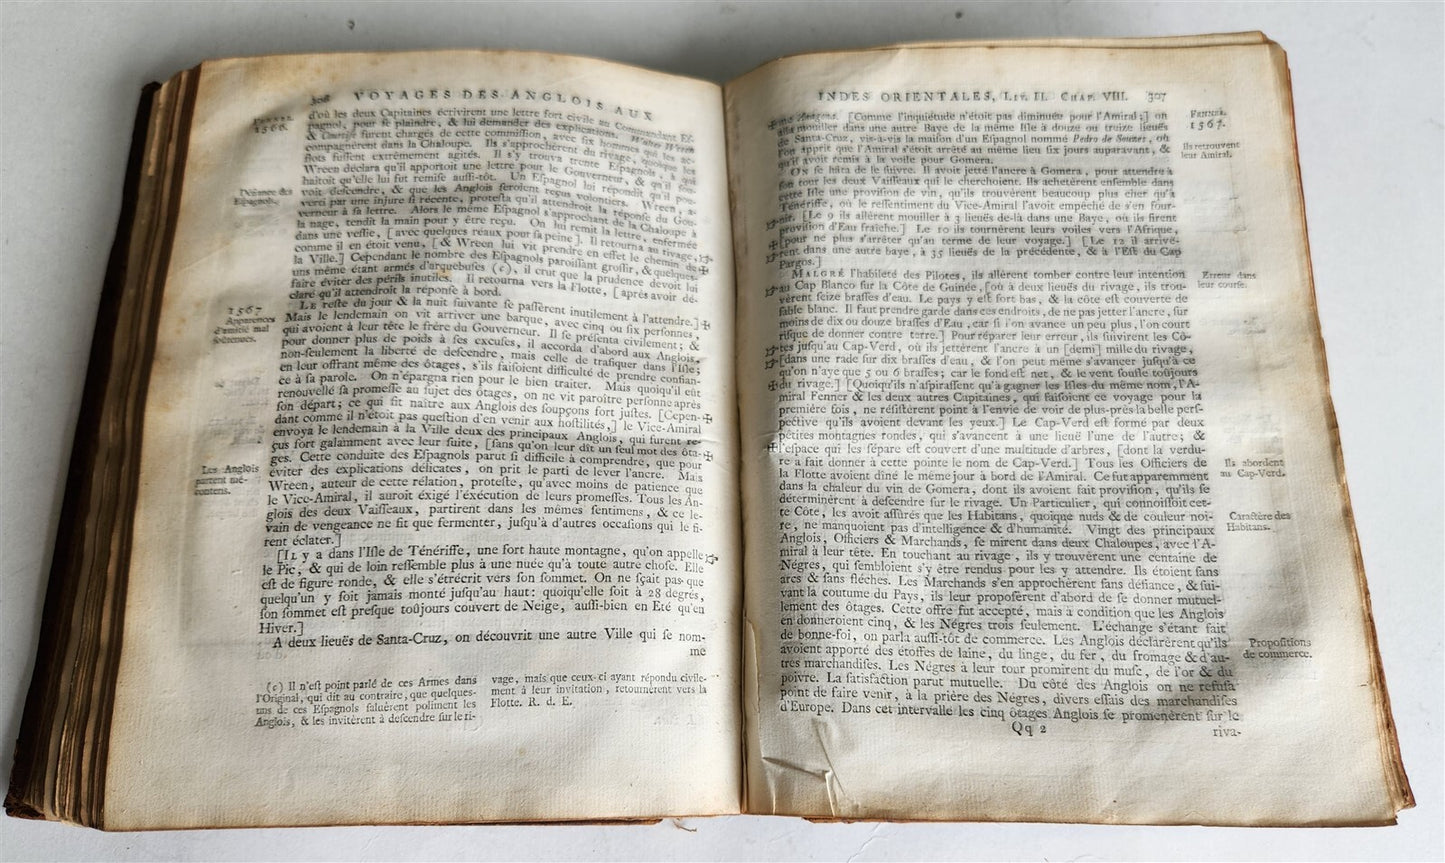 306 VOYAGES DES ANGLOIS AUX
FENNER.
1566.
d'où les deux Capitaines écrivirent une lettre fort civile au Commandant Es-
pagnol, pour se plaindre, & lui demander des explications. Walter Wreen
& furent chargés de cette commission, avec six hommes qui les ac-
compagnèrent dans la Chaloupe. Ils s'approchèrent du rivage, quoique les
flots fussent extrêmement agités. Il s'y trouva trente Espagnols, à qui
Wreen déclara qu'il apportoit une lettre pour le Gouverneur, & qu'il sou-
haitoit qu'elle lui fut remise aussi-tôt. Un Espagnol lui répondit qu'il pou-
Défiance des
Espagnols.
voit descendre, & que les Anglois seroient reçus volontiers. Wreen, a-
verti par une injure si récente, protesta qu'il attendroit la réponse du Gou-
verneur à sa lettre. Alors le même Espagnol s'approchant de la Chaloupe à
la nage, tendit la main pour y être reçu. On lui remit la lettre, enfermée
dans une vessie, [avec quelques réaux pour sa peine]. Il retourna au rivage,
comme il en étoit venu, [& Wreen lui vit prendre en effet le chemin de
la Ville.] Cependant le nombre des Espagnols paroissant grossir, & quelques-
uns même étant armés d'arquebuses (c), il crut que la prudence devoit lui
faire éviter des périls inutiles. Il retourna vers la Flotte, [après avoir dé-
claré qu'il attendroit la réponse à bord.
1567
Apparences
d'amitié mal
soûtenues.
LE reste du jour & la nuit suivante se passèrent inutilement à l'attendre.]
Mais le lendemain on vit arriver une barque, avec cinq ou six personnes,
qui avoient à leur tête le frère du Gouverneur. Il se présenta civilement; &
pour donner plus de poids à ses excuses, il accorda d'abord aux Anglois,
non-seulement la liberté de descendre, mais celle de trafiquer dans l'Isle;
en leur offrant même des ôtages, s'ils faisoient difficulté de prendre confian-
ce à sa parole. On n'épargna rien pour le bien traiter. Mais quoiqu'il eût
renouvellé sa promesse au sujet des ôtages, on ne vit paroître personne après
son départ; ce qui fit naître aux Anglois des soupçons fort justes. [Cepen-
dant comme il n'étoit pas question d'en venir aux hostilités,] le Vice-Amiral
envoya le lendemain à la Ville deux des principaux Anglois, qui furent re-
çus fort galamment avec leur suite, [sans qu'on leur dît un seul mot des ôta-
ges. Cette conduite des Espagnols parut si difficile à comprendre, que pour
Les Anglois
partent mé-
contens.
éviter des explications délicates, on prit le parti de lever l'ancre. Mais
Wreen, auteur de cette rélation, proteste, qu'avec moins de patience que
le Vice-Amiral, il auroit éxigé l'éxécution de leurs promesses. Tous les An-
glois des deux Vaisseaux, partirent dans les mêmes sentimens, & ce le-
vain de vengeance ne fit que fermenter, jusqu'à d'autres occasions qui le fi-
rent éclater.]
[IL y a dans l'Isle de Ténériffe, une fort haute montagne, qu'on appelle
le Pic, & qui de loin ressemble plus à une nuée qu'à toute autre chose. Elle
est de figure ronde, & elle s'étrécrit vers son sommet. On ne sçait pas que
quelqu'un y soit jamais monté jusqu'au haut: quoiqu'elle soit à 28 degrés,
son sommet est presque toûjours couvert de Neige, aussi-bien en Eté qu'en
Hiver.]
A deux lieuës de Santa-Cruz, on découvrit une autre Ville qui se nom-
me
(c) Il n'est point parlé de ces Armes dans
l'Original, qui dit au contraire, que quelques-
uns de ces Espagnols saluèrent poliment les
Anglois, & les invitèrent à descendre sur le ri-
vage, mais que ceux-ci ayant répondu civile-
ment à leur invitation, retournèrent vers la
Flotte. R. d. E.
INDES ORIENTALES, LIV. II. CHAP. VIII. 307
FENNER.
1567.
me [Comme l'inquiétude n'étoit pas diminuée pour l'Amiral;] on
alla mouiller dans une autre Baye de la même Isle à douze ou treize lieuës
de Santa-Cruz, vis-à-vis la maison d'un Espagnol nommé Pedro de Souzes, où
Ils retrouvent
leur Amiral.
l'on apprit que l'Amiral s'étoit arrêté au même lieu six jours auparavant, &
qu'il avoit remis à la voile pour Gomera.
ON se hâta de le suivre. Il avoit jetté l'ancre à Gomera, pour attendre à
son tour les deux Vaisseaux qui le cherchoient. Ils achetèrent ensemble dans
cette Isle une provision de vin, qu'ils trouvèrent beaucoup plus cher qu'à
Ténériffe, où le ressentiment du Vice-Amiral l'avoit empêché de s'en four-
nir. [Le 9 ils allèrent mouiller à 3 lieuës de-là dans une Baye, où ils firent
provision d'Eau fraîche.] Le 10 ils tournèrent leurs voiles vers l'Afrique,
[pour ne plus s'arrêter qu'au terme de leur voyage.] [Le 12 il arrivè-
rent dans une autre baye, à 35 lieuës de la précédente, & à l'Est du Cap
Pargos.]
MALGRÉ l'habileté des Pilotes, ils allèrent tomber contre leur intention
Erreur dans
leur course.
au Cap Blanco sur la Côte de Guinée, [où à deux lieuës du rivage, ils trou-
vèrent seize brasses d'eau. Le pays y est fort bas, & la côte est couverte de
sable blanc. Il faut prendre garde dans ces endroits, de ne pas jetter l'ancre, sur
moins de dix ou douze brasses d'Eau, car si l'on avance un peu plus, l'on court
risque de donner contre terre.] Pour réparer leur erreur, ils suivirent les Cô-
tes jusqu'au Cap-Verd, où ils jettèrent l'ancre à un [demi] mille du rivage,
[dans une rade sur dix brasses d'eau, & l'on peut même s'avancer jusqu'à ce
qu'on n'aye que 5 ou 6 brasses; car le fond est net, & le vent souffle toujours
du rivage.] [Quoiqu'ils n'aspirassent qu'à gagner les Isles du même nom, l'A-
miral Fenner & les deux autres Capitaines, qui faisoient ce voyage pour la
première fois, ne résistèrent point à l'envie de voir de plus-près la belle pers-
pective qu'ils avoient devant les yeux.] Le Cap-Verd est formé par deux
petites montagnes rondes, qui s'avancent à une lieuë l'une de l'autre; &
l'espace qui les sépare est couvert d'une multitude d'arbres, [dont la verdu-
re a fait donner à cette pointe le nom de Cap-Verd.] Tous les Officiers de
Ils abordent
au Cap-Verd.
la Flotte avoient dîné le même jour à bord de l'Amiral. Ce fut apparemment
dans la chaleur du vin de Gomera, dont ils avoient fait provision, qu'ils se
déterminèrent à descendre sur le rivage. Un Particulier, qui connoissoit cet-
te Côte, les avoit assûrés que les Habitans, quoique nuds & de couleur noi-
Caractère des
Habitans.
re, ne manquoient pas d'intelligence & d'humanité. Vingt des principaux
Anglois, Officiers & Marchands, se mirent dans deux Chaloupes, avec l'A-
miral à leur tête. En touchant au rivage, ils y trouvèrent une centaine de
Négres, qui sembloient s'y être rendus pour les y attendre. Ils étoient sans
arcs & sans flèches. Les Marchands s'en approchèrent sans défiance, & sui-
vant la coutume du Pays, ils leur proposèrent d'abord de se donner mutuel-
lement des ôtages. Cette offre fut acceptée, mais à condition que les Anglois
en donneroient cinq, & les Négres trois seulement. L'échange s'étant fait
de bonne-foi, on parla aussi-tôt de commerce. Les Anglois déclarèrent qu'ils
Propositions
de commerce.
avoient apporté des étoffes de laine, du linge, du fer, du fromage & d'au-
tres marchandises. Les Négres à leur tour promirent du musc, de l'or & du
poivre. La satisfaction parut mutuelle. Du côté des Anglois on ne refusa
point de faire venir, à la prière des Négres, divers essais des marchandises
d'Europe. Dans cet intervalle les cinq ôtages Anglois se promenèrent sur le
Qq 2
riva-